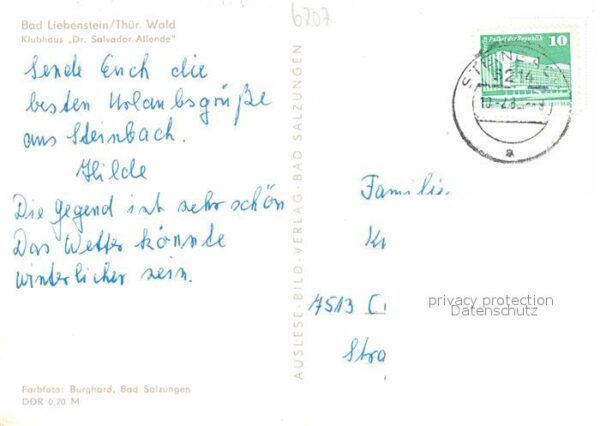 Bad Liebenstein/Thür. Wald
Klubhaus „Dr. Salvador Allende"
6207
Sende Euch die
besten Urlaubsgrüße
aus Steinbach.
Hilde
Die Gegend ist sehr schön
Das Wetter könnte
winterlicher sein.
Farbfoto: Burghard, Bad Salzungen
DDR 0,20 M
AUSLESE-BILD-VERLAG-BAD SALZUNGEN
Palast der Republik
10
6214
a
Familie
7513
Stra
privacy protection
Datenschutz